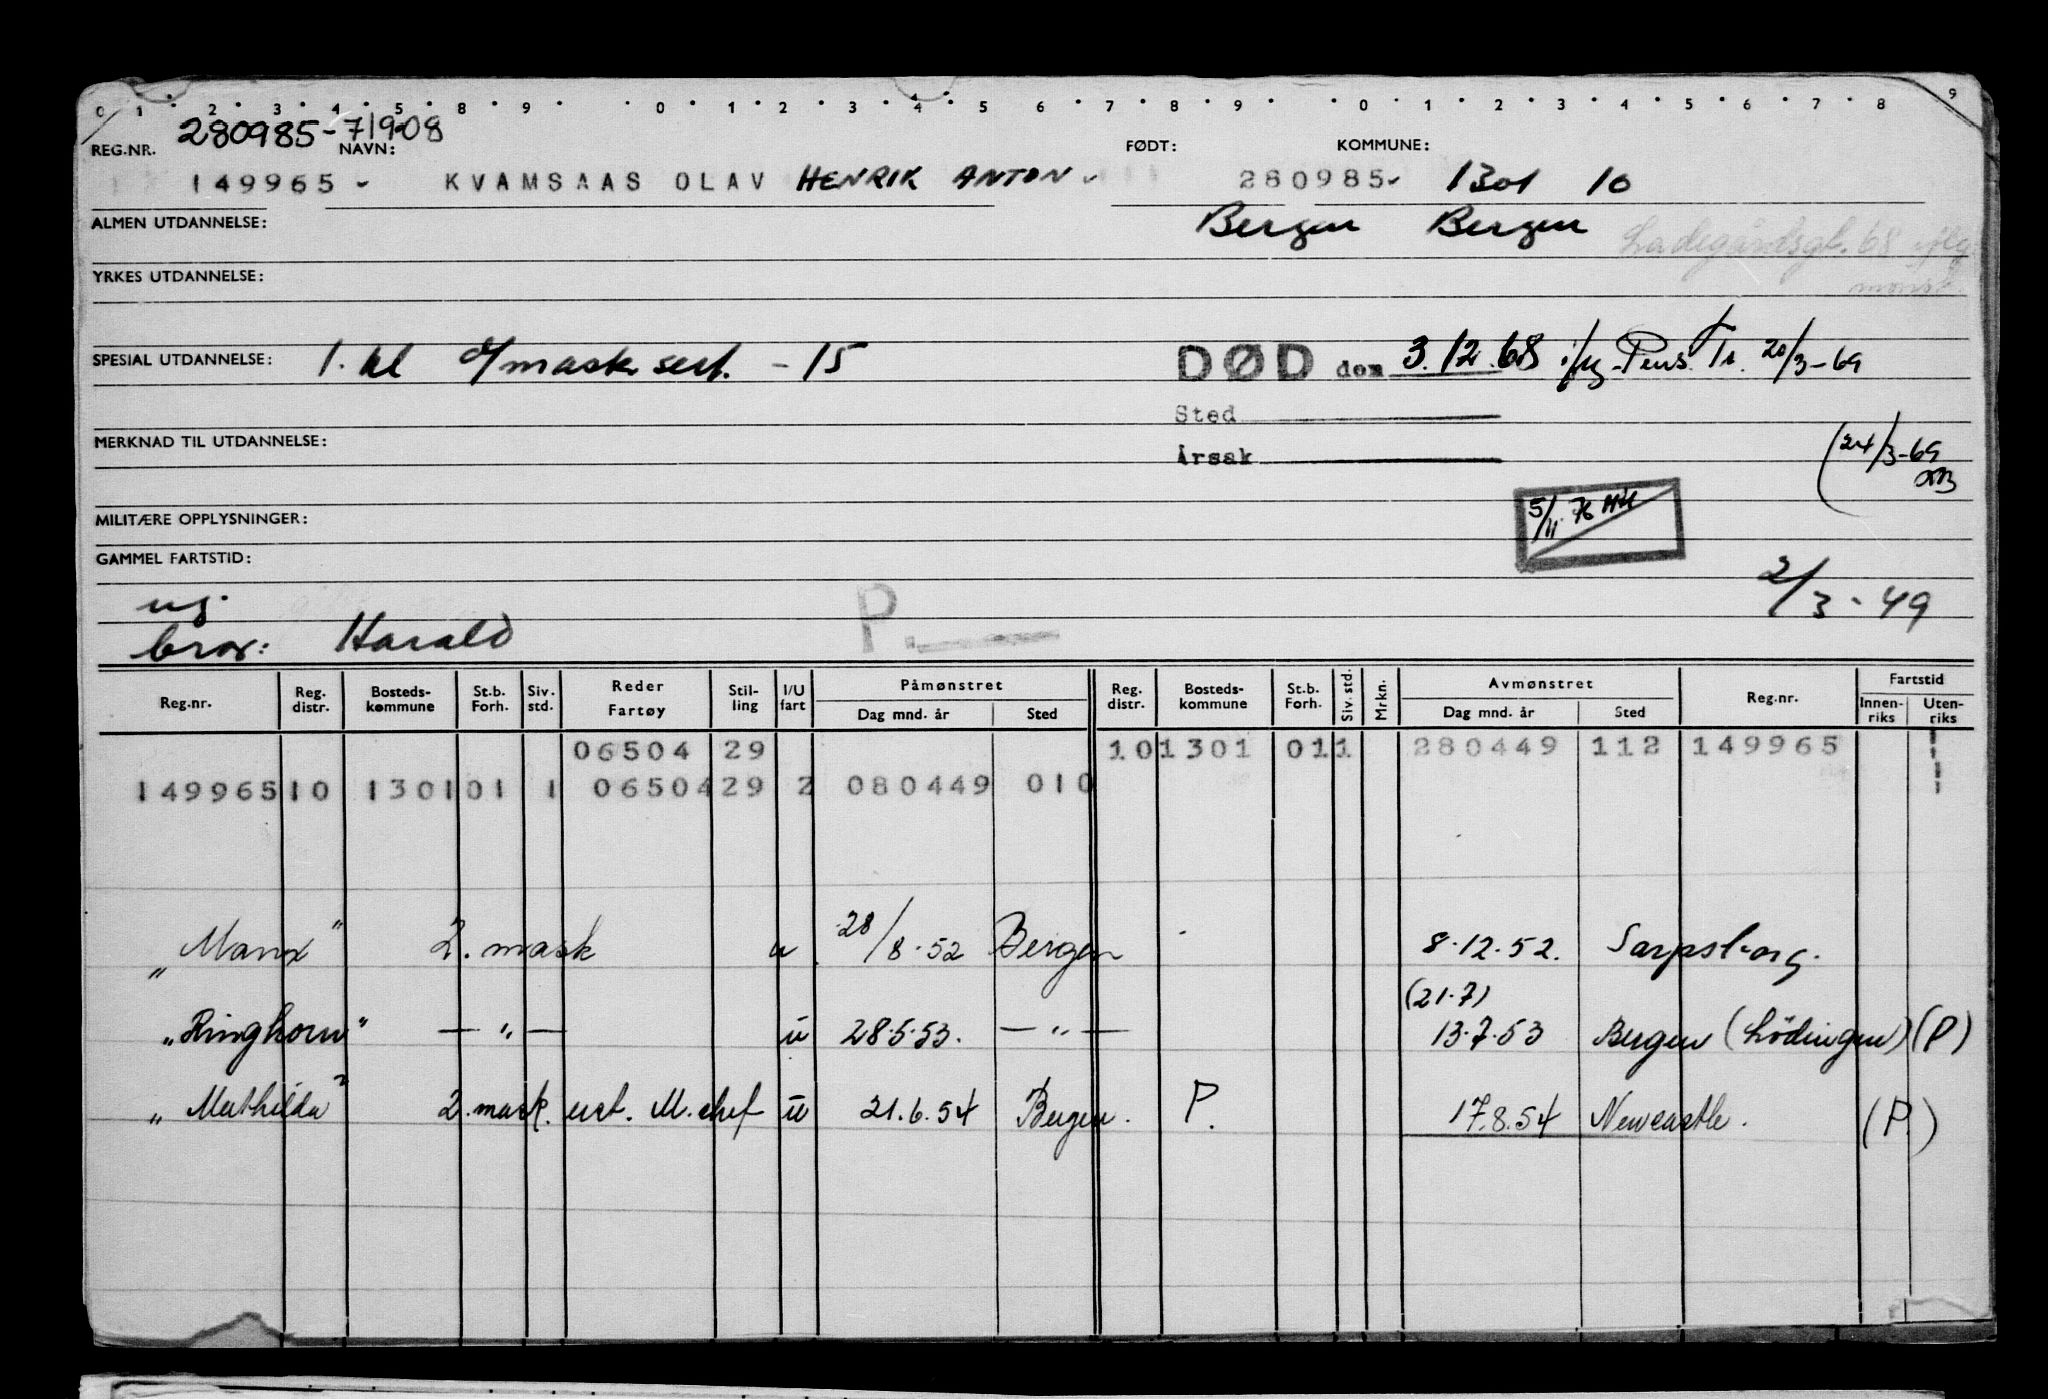 0 1 2 3 4 5 8 9 0 1 2 3 4 5 6 7 8 9 0 1 2 3 4 5 6 7 8 9
280985-71908
REG.NR. NAVN: FØDT: KOMMUNE:
149965- KVAMSAAS OLAV HENRIK ANTON 280985- 1301 10
ALMEN UTDANNELSE: Bergen Bergen
Ladegårdsgt. 68 iflg
YRKES UTDANNELSE: mønst.
SPESIAL UTDANNELSE: 1. kl mask sert. -15 DØD den 3.12.68 i/flg Pens. Tr. 20/3-69
Sted
MERKNAD TIL UTDANNELSE: (24/3-69
Årsak
5/11 76
MILITÆRE OPPLYSNINGER:
GAMMEL FARTSTID:
2/3-49
ug. P.
bror: Harald
Reg.nr. Reg. distr. Bosteds-kommune St.b. Forh. Siv. std. Reder Fartøy Stil-ling I/U fart Påmønstret Dag mnd. år Sted Reg. distr. Bosteds-kommune St.b. Forh. Siv. std. Mrkn. Avmønstret Dag mnd. år Sted Reg.nr. Fartstid Innen-riks Uten-riks
06504 29 10 1301 01 1 280449 112 149965
149965 10 1301 01 1 06504 29 2 080449 010
"Manx" 2. mask u 28/8-52 Bergen 8.12.52. Sarpsborg.
(21.7)
"Ringhorn" — " — u 28.5.53. — " — 13.7.53 Bergen (Lødingen) (P)
"Mathilda" 2. mask. ust. M. chef u 21.6.54 Bergen. P. 17.8.54 Newcastle. (P.)